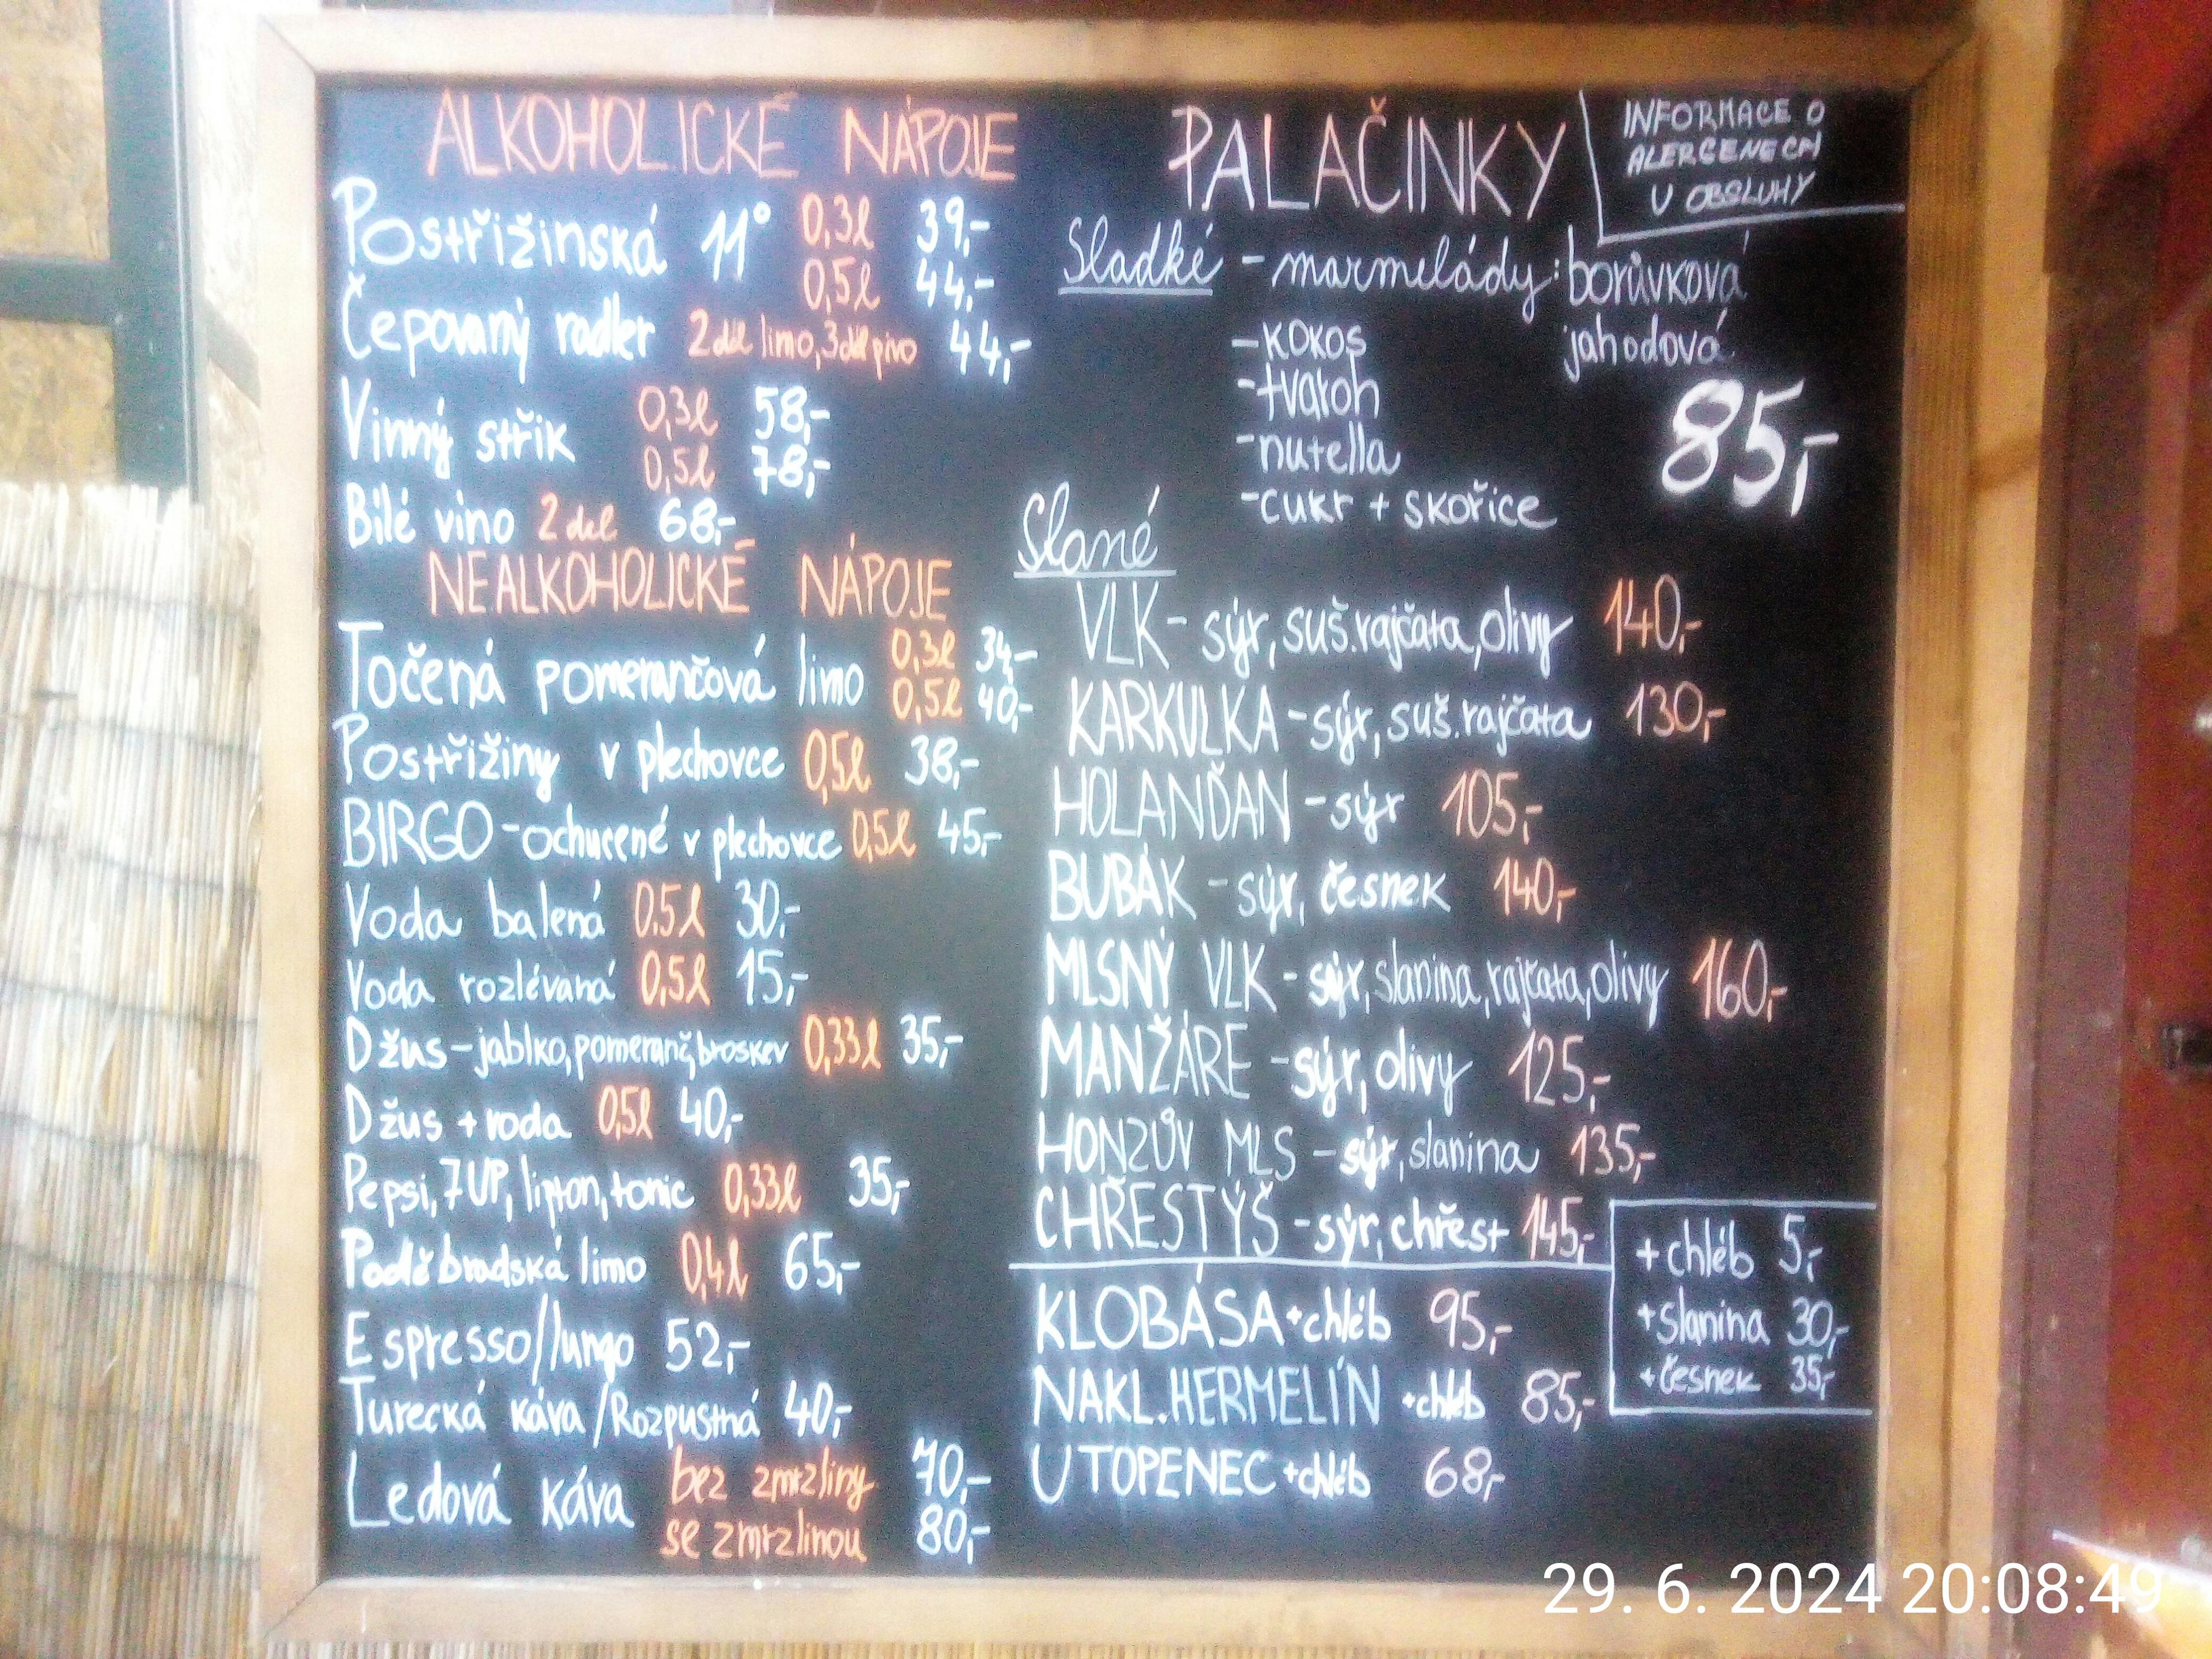 ALKOHOLICKÉ NÁPOJE
Postřižinská 11° 0,3l 39,-
0,5l 44,-
Čepovaný radler 2 dcl limo, 3 dcl pivo 44,-
Vinný střik 0,3l 58,-
0,5l 78,-
Bílé víno 2 dcl 68,-
NEALKOHOLICKÉ NÁPOJE
Točená pomerančová limo 0,3l 34,-
0,5l 40,-
Postřižiny v plechovce 0,5l 38,-
BIRGO - ochucené v plechovce 0,5l 45,-
Voda balená 0.5l 30,-
Voda rozlévaná 0,5l 15,-
Džus - jablko, pomeranč, broskev 0,33l 35,-
Džus + voda 0,5l 40,-
Pepsi, 7UP, lipton, tonic 0,33l 35,-
Poděbradská limo 0,4l 65,-
Espresso/lungo 52,-
Turecká káva/Rozpustná 40,-
Ledová káva bez zmrzliny 70,-
se zmrzlinou 80,-
PALAČINKY
INFORMACE O
ALERGENECH
U OBSLUHY
Sladké - marmelády: borůvková
jahodová
- kokos
- tvaroh
- nutella
- cukr + skořice
85,-
Slané
VLK - sýr, suš. rajčata, olivy 140,-
KARKULKA - sýr, suš. rajčata 130,-
HOLANĎAN - sýr 105,-
BUBÁK - sýr, česnek 140,-
MLSNÝ VLK - sýr, slanina, rajčata, olivy 160,-
MANŽÁRE - sýr, olivy 125,-
HONZŮV MLS - sýr, slanina 135,-
CHŘESTÝŠ - sýr, chřest 145,-
KLOBÁSA + chléb 95,-
NAKL. HERMELÍN + chléb 85,-
UTOPENEC + chléb 68,-
+ chléb 5,-
+ slanina 30,-
+ česnek 35,-
29. 6. 2024 20:08:49